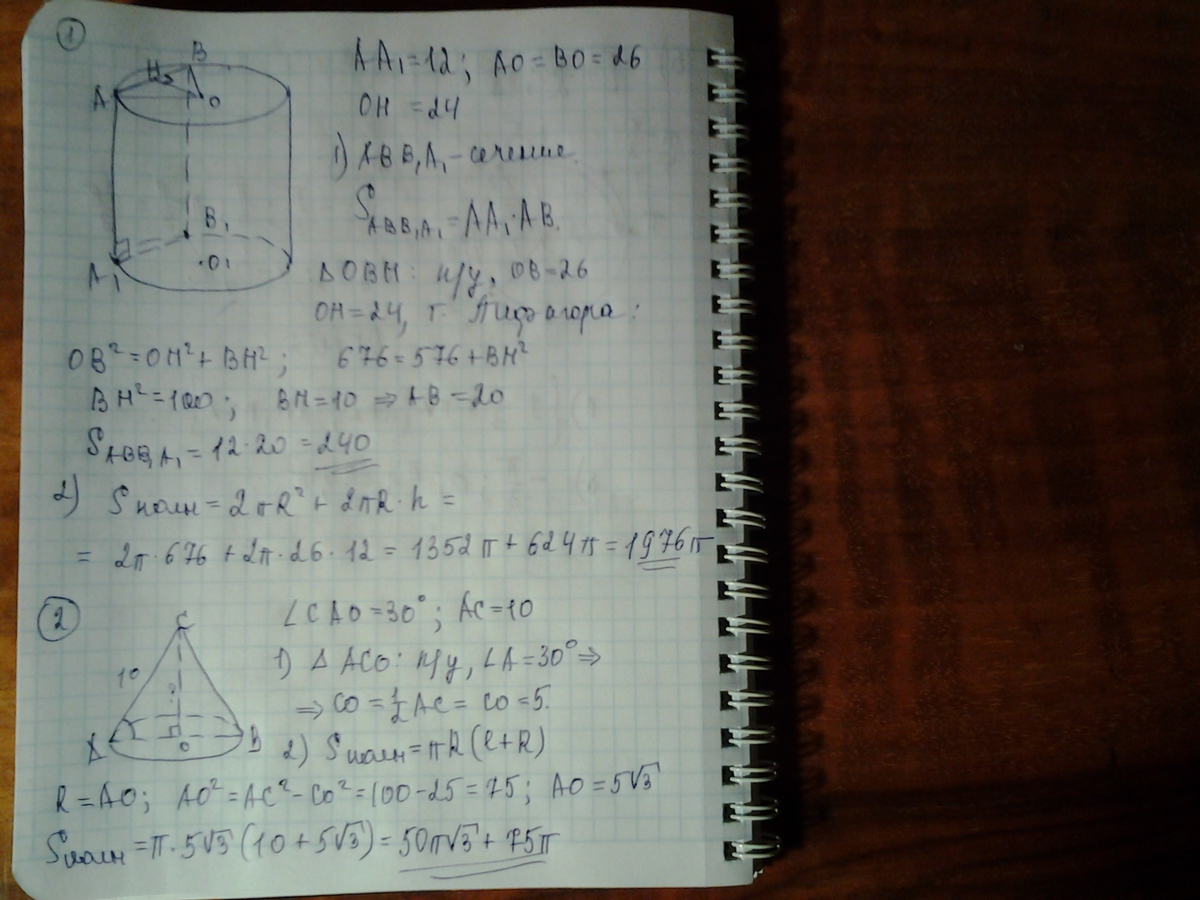 1
B
H
A
O
B₁
A₁
O₁
AA₁ = 12; AO = BO = 26
OH = 24
1) ABB₁A₁ - сечение.
S_ABB₁A₁ = AA₁ · AB.
△OBH: п/у, OB = 26
OH = 24, т. Пифагора:
OB² = OH² + BH²; 676 = 576 + BH²
BH² = 100; BH = 10 ⇒ AB = 20
S_ABB₁A₁ = 12 · 20 = 240
2) S полн = 2πR² + 2πR · h =
= 2π · 676 + 2π · 26 · 12 = 1352π + 624π = 1976π
2
C
10
?
A
O
B
∠CAO = 30°; AC = 10
1) △ACO: п/у, ∠A = 30° ⇒
⇒ CO = ½ AC = CO = 5.
2) S полн = πR(l + R)
R = AO; AO² = AC² - CO² = 100 - 25 = 75; AO = 5√3
S полн = π · 5√3 (10 + 5√3) = 50π√3 + 75π